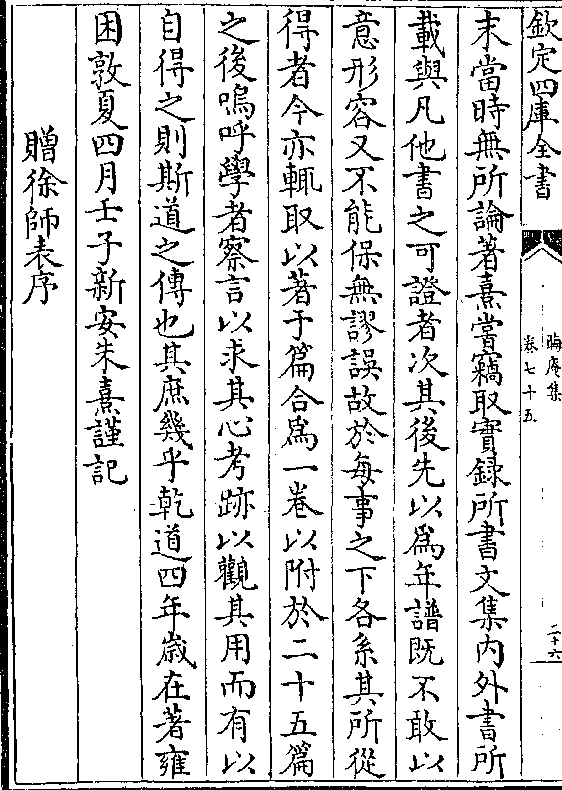 欽定四庫全書
晦庵集
卷七十五
二十六
末當時無所論著熹嘗竊取實録所書文集內外書所
載與凡他書之可證者次其後先以為年譜既不敢以
意形容又不能保無謬誤故於每事之下各系其所從
得者今亦輒取以著于篇合為一卷以附於二十五篇
之後嗚呼學者察言以求其心考跡以觀其用而有以
自得之則斯道之傳也其庶幾乎乾道四年嵗在著雍
困敦夏四月壬子新安朱熹謹記
贈徐師表序